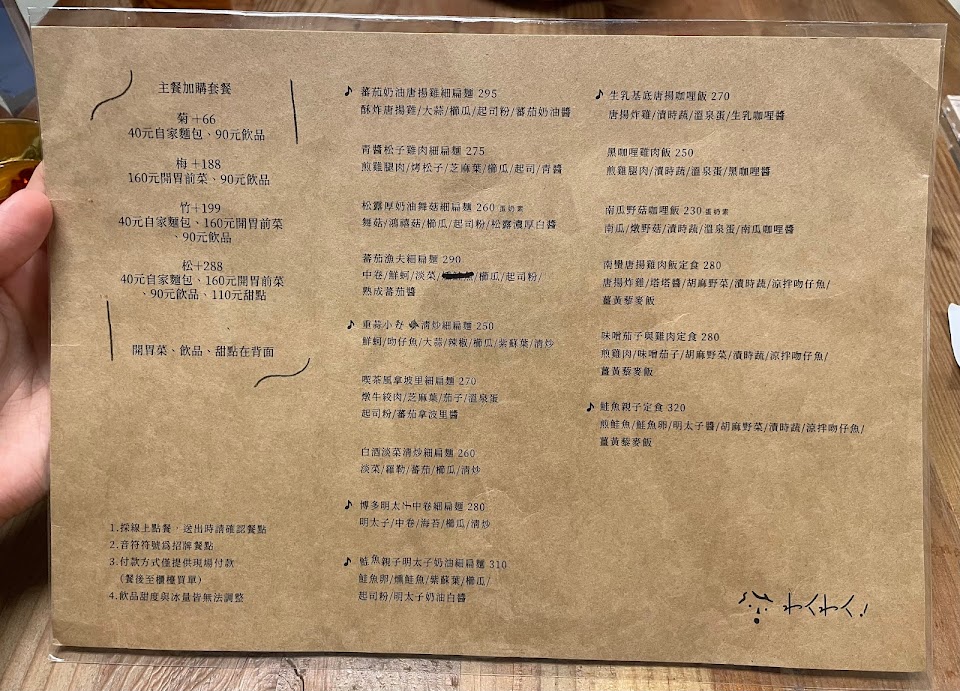 主餐加購套餐
菊+66
40元自家麵包、90元飲品
梅+188
160元開胃前菜、90元飲品
竹+199
40元自家麵包、160元開胃前菜
、90元飲品
松+288
40元自家麵包、160元開胃前菜
、90元飲品、110元甜點
開胃菜、飲品、甜點在背面
1.採線上點餐，送出時請確認餐點
2.音符符號為招牌餐點
3.付款方式僅提供現場付款
（餐後至櫃檯買單）
4.飲品甜度與冰量皆無法調整
♪ 蕃茄奶油唐揚雞細扁麵 295
酥炸唐揚雞/大蒜/櫛瓜/起司粉/蕃茄奶油醬
青醬松子雞肉細扁麵 275
煎雞腿肉/烤松子/芝麻葉/櫛瓜/起司/青醬
松露厚奶油舞菇細扁麵 260 蛋奶素
舞菇/鴻禧菇/櫛瓜/起司粉/松露濃厚白醬
蕃茄漁夫細扁麵 290
中卷/鮮蚵/淡菜/櫛瓜/起司粉/
熟成蕃茄醬
♪ 重蒜小 清炒細扁麵 250
鮮蚵/吻仔魚/大蒜/辣椒/櫛瓜/紫蘇葉/清炒
喫茶風拿坡里細扁麵 270
燉牛絞肉/芝麻葉/茄子/溫泉蛋
起司粉/蕃茄拿波里醬
白酒淡菜清炒細扁麵 260
淡菜/羅勒/蕃茄/櫛瓜/清炒
♪ 博多明太 中卷細扁麵 280
明太子/中卷/海苔/櫛瓜/清炒
♪ 鮭魚親子明太子奶油細扁麵 310
鮭魚卵/燻鮭魚/紫蘇葉/櫛瓜/
起司粉/明太子奶油白醬
♪ 生乳基底唐揚咖哩飯 270
唐揚炸雞/漬時蔬/溫泉蛋/生乳咖哩醬
黑咖哩雞肉飯 250
煎雞腿肉/漬時蔬/溫泉蛋/黑咖哩醬
南瓜野菇咖哩飯 230 蛋奶素
南瓜/燉野菇/漬時蔬/溫泉蛋/南瓜咖哩醬
南蠻唐揚雞肉飯定食 280
唐揚炸雞/塔塔醬/胡麻野菜/漬時蔬/涼拌吻仔魚/
薑黃藜麥飯
味噌茄子與雞肉定食 280
煎雞肉/味噌茄子/胡麻野菜/漬時蔬/涼拌吻仔魚/
薑黃藜麥飯
♪ 鮭魚親子定食 320
煎鮭魚/鮭魚卵/明太子醬/胡麻野菜/漬時蔬/涼拌吻仔魚/
薑黃藜麥飯
わくわく